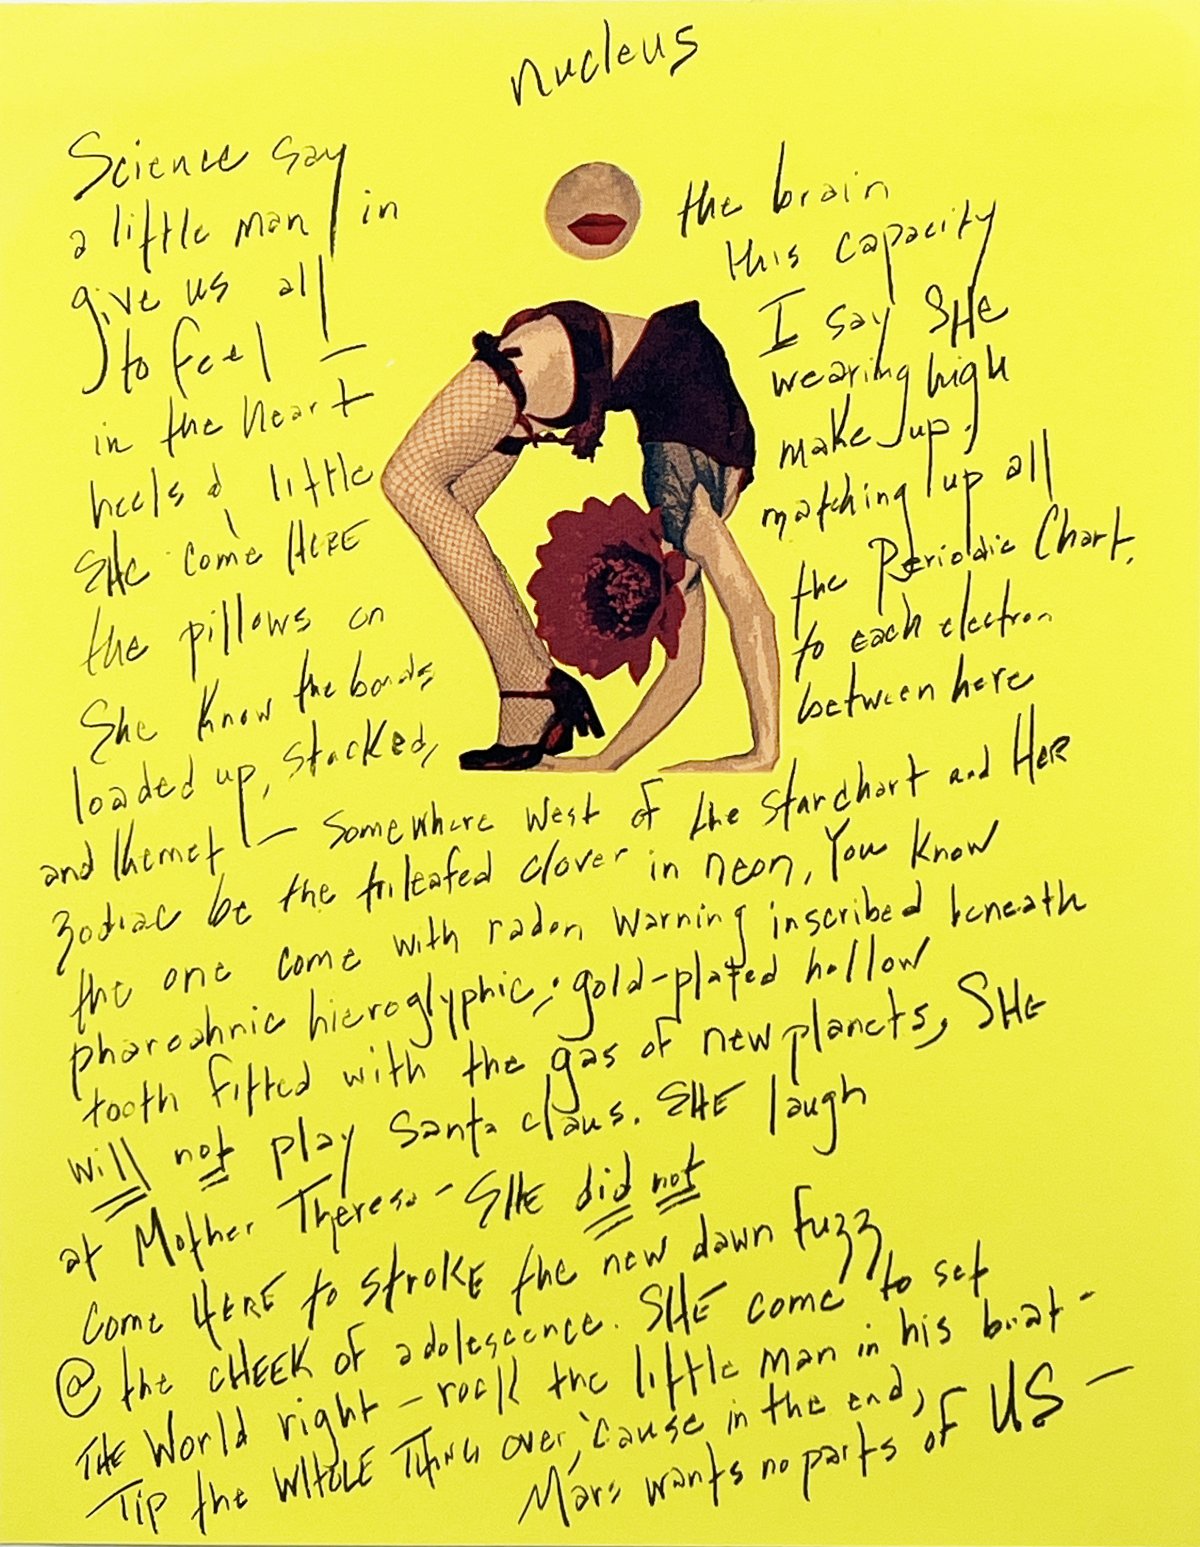 nucleus
Science say
a little man in the brain
give us all this capacity
to feel — I say SHE
in the heart wearing high
heels & little make up.
SHE come HERE matching up all
the pillows on the Periodic Chart.
She know the bonds to each electron
loaded up, stacked, between here
and Khemet — somewhere West of the starchart and HER
zodiac be the trileafed clover in neon, You know
the one come with radon warning inscribed beneath
pharoahnic hieroglyphic; gold-plated hollow
tooth fitted with the gas of new planets, SHE
will not play Santa claus. SHE laugh
at Mother Theresa - SHE did not
come HERE to stroke the new dawn fuzz
@ the CHEEK of adolescence. SHE come to set
THE World right — rock the little man in his boat -
Tip the WHOLE THING over, 'cause in the end,
Mars wants no parts of US —